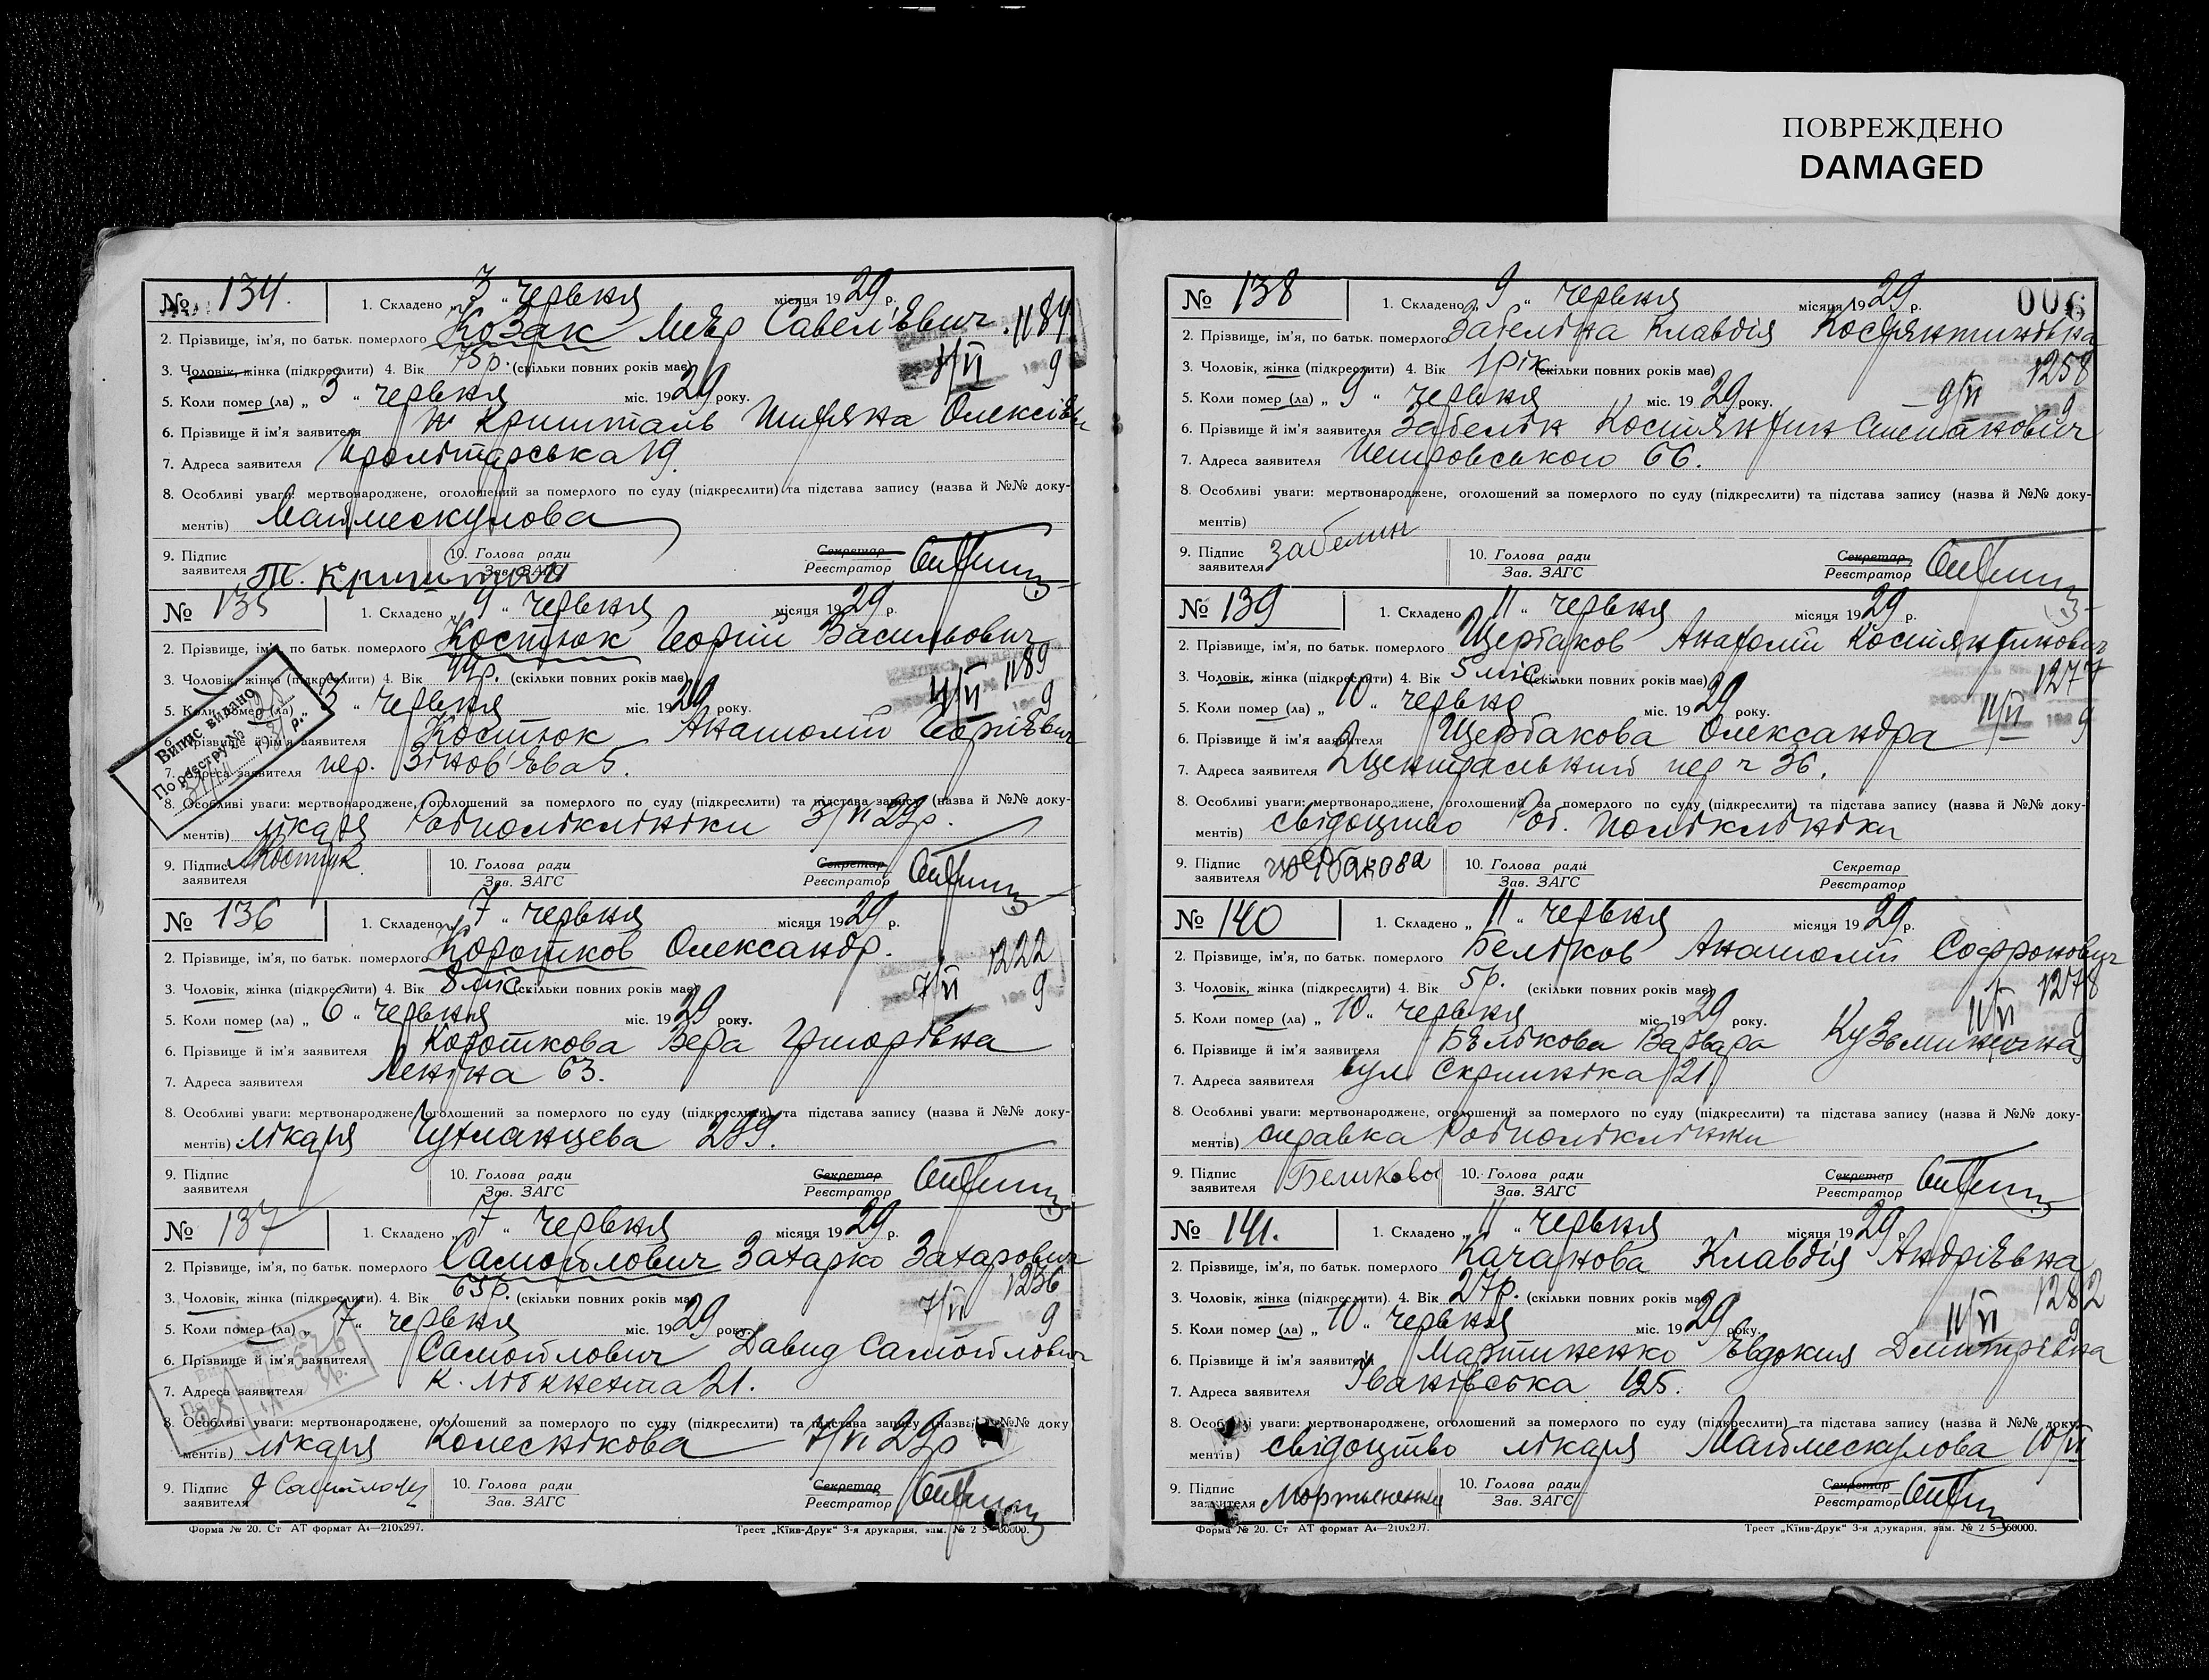 ПОВРЕЖДЕНО
DAMAGED
№ 134.
1. Складено „ 3 “ червня місяця 1929 р.
2. Прізвище, ім'я, по батьк. померлого Козак Меєр Савелієвич. 1184
3. Чоловік, жінка (підкреслити) 4. Вік 75р. (скільки повних років має)
5. Коли помер (ла) „ 3 “ червня міс. 1929 року.
6. Прізвище й ім'я заявителя Кришталь Олексіївн
7. Адреса заявителя Пролітарська 19.
8. Особливі уваги: мертвонароджене, оголошений за померлого по суду (підкреслити) та підстава запису (назва й №№ доку-
ментів) Маймескулова
9. Підпис заявителя Т. Кришталь 10. Голова ради Зав. ЗАГС Секретар Реєстратор
№ 135
1. Складено „ 4 “ червня місяця 1929 р.
2. Прізвище, ім'я, по батьк. померлого Костюк Георгій Васильович
3. Чоловік, жінка (підкреслити) 4. Вік 44р. (скільки повних років має) 1189
5. Коли помер (ла) „ 3 “ червня міс. 1929 року. 4/VI 9
6. Прізвище й ім'я заявителя Костюк Анатолій Георгієвич
7. Адреса заявителя пер. Зінов'єва 5.
Випис видано
По реєстру №
8. Особливі уваги: мертвонароджене, оголошений за померлого по суду (підкреслити) та підстава запису (назва й №№ доку-
ментів) лікаря Робполіклініки 3/VI 29р.
9. Підпис заявителя АКостюк 10. Голова ради Зав. ЗАГС Секретар Реєстратор
№ 136
1. Складено „ 7 “ червня місяця 1929 р.
2. Прізвище, ім'я, по батьк. померлого Коротков Олександр. 1222
3. Чоловік, жінка (підкреслити) 4. Вік 8 міс. (скільки повних років має) 7/VI 9
5. Коли помер (ла) „ 6 “ червня міс. 1929 року.
6. Прізвище й ім'я заявителя Короткова Вера Григорівна
7. Адреса заявителя Леніна 63.
8. Особливі уваги: мертвонароджене, оголошений за померлого по суду (підкреслити) та підстава запису (назва й №№ доку-
ментів) лікаря Чухланцева
9. Підпис заявителя 10. Голова ради Зав. ЗАГС Секретар Реєстратор
№ 137
1. Складено „ 7 “ червня місяця 1929 р.
2. Прізвище, ім'я, по батьк. померлого Самойлович Захарко Захарович
3. Чоловік, жінка (підкреслити). 4. Вік 65р. (скільки повних років має) 7/VI 1236
5. Коли помер (ла) „ 7 “ червня міс. 1929 року. 9
6. Прізвище й ім'я заявителя Самойлович Давид Самойлович
7. Адреса заявителя К. Лібкнехта 21.
8. Особливі уваги: мертвонароджене, оголошений за померлого по суду (підкреслити) та підстава запису (назва й №№ доку
ментів) лікаря Колеснікова 7/VI 29р
9. Підпис заявителя 10. Голова ради Зав. ЗАГС Секретар Реєстратор
Форма № 20. Ст АТ формат А4—210х297. Трест „Київ-Друк“ 3-я друкарня, зам. № 2 5—60000.
006
№ 138
1. Складено „ 9 “ червня місяця 1929 р.
2. Прізвище, ім'я, по батьк. померлого Забеліна Клавдія Костянтинівна
3. Чоловік, жінка (підкреслити) 4. Вік 1 рік (скільки повних років має) 1258
5. Коли помер (ла) „ 9 “ червня міс. 1929 року. 9/VI 9
6. Прізвище й ім'я заявителя Забелін Костянтин Степанович
7. Адреса заявителя Петровського 66.
8. Особливі уваги: мертвонароджене, оголошений за померлого по суду (підкреслити) та підстава запису (назва й №№ доку-
ментів)
9. Підпис заявителя Забелин 10. Голова ради Зав. ЗАГС Секретар Реєстратор
№ 139
1. Складено „ 11 “ червня місяця 1929 р.
2. Прізвище, ім'я, по батьк. померлого Щербаков Анатолій Костянтинович
3. Чоловік, жінка (підкреслити) 4. Вік 5 міс. (скільки повних років має) 1277
5. Коли помер (ла) „ 10 “ червня міс. 1929 року. 11/VI 9
6. Прізвище й ім'я заявителя Щербакова Олександра
7. Адреса заявителя 2 Центральний пер ч 36.
8. Особливі уваги: мертвонароджене, оголошений за померлого по суду (підкреслити) та підстава запису (назва й №№ доку-
ментів) свідоцтво Роб. Поліклініки
9. Підпис заявителя Щербакова 10. Голова ради Зав. ЗАГС Секретар Реєстратор
№ 140
1. Складено „ 11 “ червня місяця 1929 р.
2. Прізвище, ім'я, по батьк. померлого Беліков Анатолій Софронович
3. Чоловік, жінка (підкреслити) 4. Вік 5р. (скільки повних років має) 1278
5. Коли помер (ла) „ 10 “ червня міс. 1929 року. 11/VI 9
6. Прізвище й ім'я заявителя Бєлікова Варвара Кузьминична
7. Адреса заявителя вул. Скрипніка 21.
8. Особливі уваги: мертвонароджене, оголошений за померлого по суду (підкреслити) та підстава запису (назва й №№ доку-
ментів) справка Робполіклініки
9. Підпис заявителя Беликова 10. Голова ради Зав. ЗАГС Секретар Реєстратор
№ 141.
1. Складено „ 11 “ червня місяця 1929 р.
2. Прізвище, ім'я, по батьк. померлого Качанова Клавдія Андрієвна
3. Чоловік, жінка (підкреслити). 4. Вік 27р. (скільки повних років має) 1282
5. Коли помер (ла) „ 10 “ червня міс. 1929 року. 11/VI 9
6. Прізвище й ім'я заявителя Мартиненко Евдокия Дмитрівна
7. Адреса заявителя Іванівська 125.
8. Особливі уваги: мертвонароджене, оголошений за померлого по суду (підкреслити) та підстава запису (назва й №№ доку-
ментів) свідоцтво лікаря Маймескулова 10/VI
9. Підпис заявителя Мортыненко 10. Голова ради Зав. ЗАГС Секретар Реєстратор
Форма № 20. Ст АТ формат А4—210х297. Трест „Київ-Друк“ 3-я друкарня, зам. № 2 5—60000.